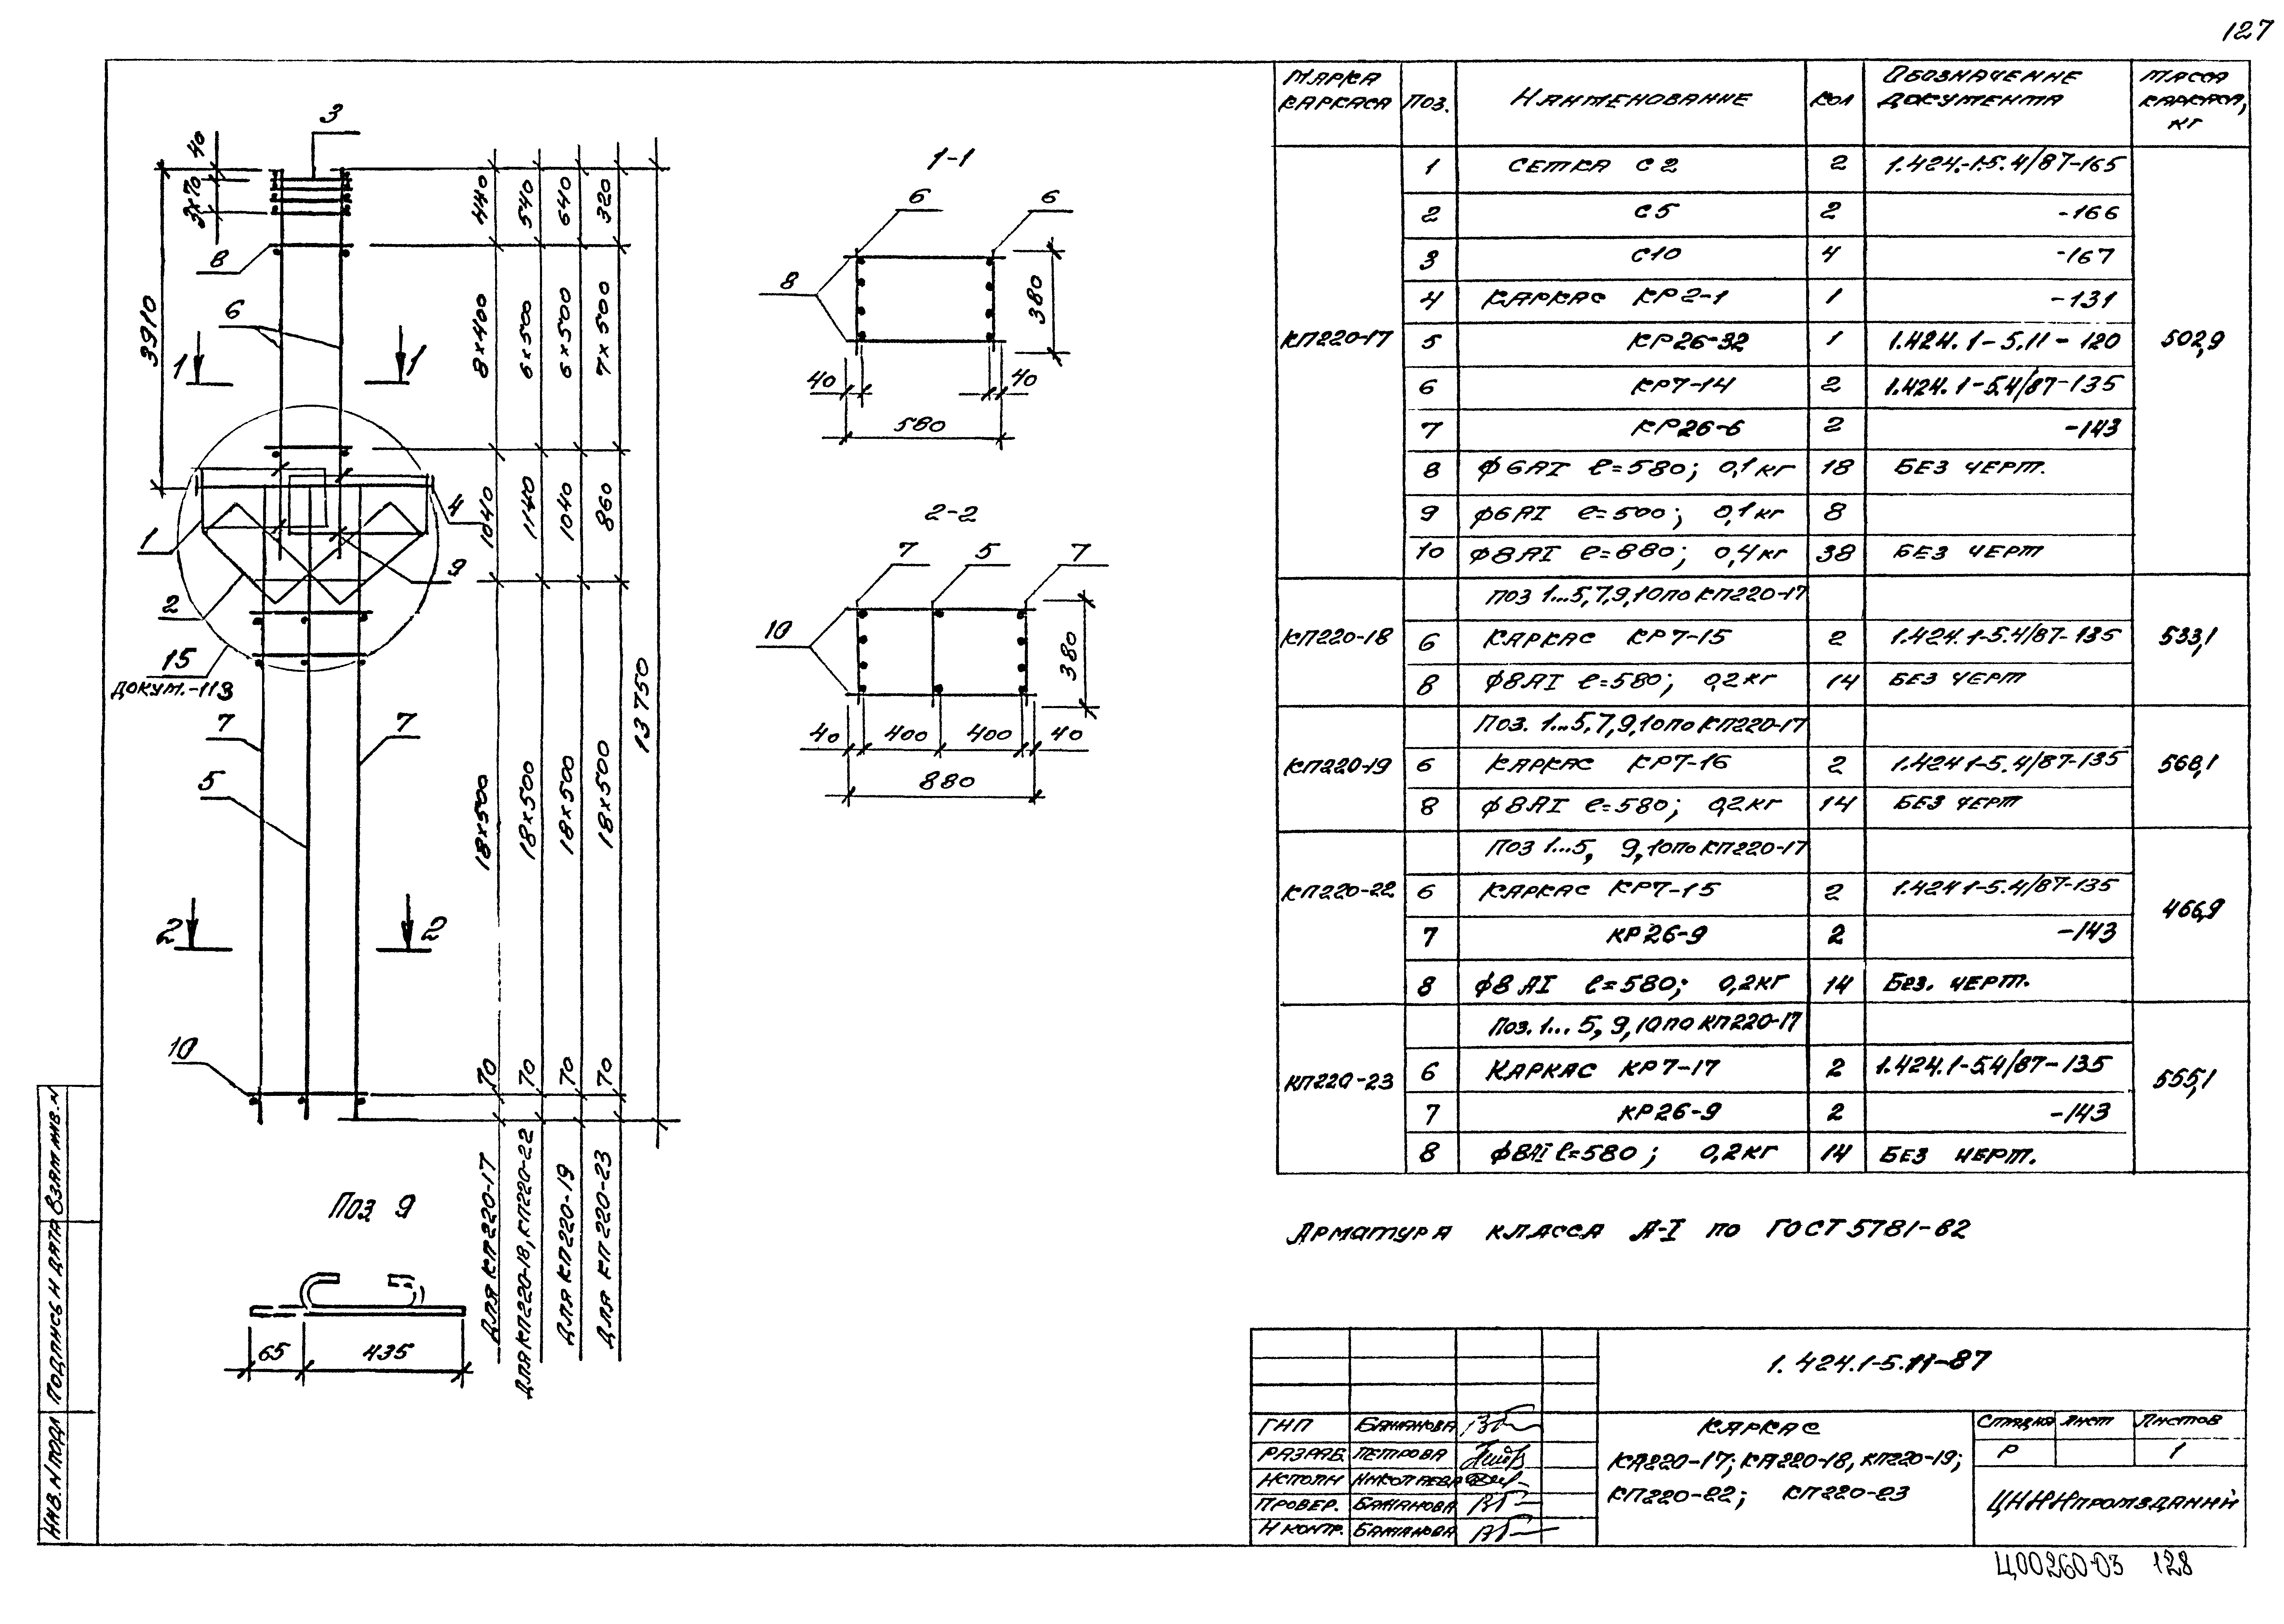 127
3
40
3×70
3910
8
6
1
1
4
1
9
2
15
ДОКУМ.-113
7
7
5
2
2
10
440
540
640
320
8×400
6×500
6×500
7×500
1040
1140
1040
860
13750
18×500
18×500
18×500
18×500
70
70
70
70
ДЛЯ КП220-17
ДЛЯ КП220-18, КП220-22
ДЛЯ КП220-19
ДЛЯ КП220-23
1-1
6
6
8
380
40
40
580
2-2
7
5
7
10
380
40
400
400
40
880
Поз 9
65
435
МАРКА КАРКАСА
ПОЗ.
НАИМЕНОВАНИЕ
КОЛ
ОБОЗНАЧЕНИЕ ДОКУМЕНТА
МАССА КАРКАСА, КГ
КП220-17
502,9
1 СЕТКА С2 2 1.424.-1-5.4/87-165
2 С5 2 -166
3 С10 4 -167
4 КАРКАС КР2-1 1 -131
5 КР26-32 1 1.424.1-5.11-120
6 КР7-14 2 1.424.1-5.4/87-135
7 КР26-6 2 -143
8 ф6АI ℓ=580; 0,1кг 18 БЕЗ ЧЕРТ.
9 ф6АI ℓ=500; 0,1кг 8
10 ф8АI ℓ=880; 0,4кг 38 БЕЗ ЧЕРТ
КП220-18
533,1
ПОЗ 1...5,7,9,10 по КП220-17
6 КАРКАС КР7-15 2 1.424.1-5.4/87-135
8 ф8АI ℓ=580; 0,2кг 14 БЕЗ ЧЕРТ
КП220-19
568,1
Поз. 1...5,7,9,10 по КП220-17
6 КАРКАС КР7-16 2 1.424 1-5.4/87-135
8 ф8АI ℓ=580; 0,2кг 14 БЕЗ ЧЕРТ
КП220-22
466,9
Поз 1...5, 9,10 по КП220-17
6 КАРКАС КР7-15 2 1.424 1-5.4/87-135
7 КР26-9 2 -143
8 ф8АI ℓ=580; 0,2кг 14 Без. ЧЕРТ.
КП220-23
555,1
Поз. 1...5, 9,10 по КП220-17
6 КАРКАС КР7-17 2 1.424.1-5.4/87-135
7 КР26-9 2 -143
8 ф8АI ℓ=580; 0,2кг 14 БЕЗ ЧЕРТ.
АРМАТУРА КЛАССА А-I по ГОСТ 5781-82
1.424.1-5.11-87
ГИП БАЖАНОВА
РАЗРАБ. ПЕТРОВА
ИСПОЛН НИКОЛАЕВА
ПРОВЕР. БАЖАНОВА
Н КОНТР. БАЖАНОВА
КАРКАС
КП220-17; КП220-18, КП220-19;
КП220-22; КП220-23
СТАДИЯ ЛИСТ ЛИСТОВ
Р 1
ЦНИИПРОМЗДАНИЙ
ИНВ. N ПОДЛ ПОДПИСЬ И ДАТА ВЗАМ ИНВ. N
Ц00260-03 128